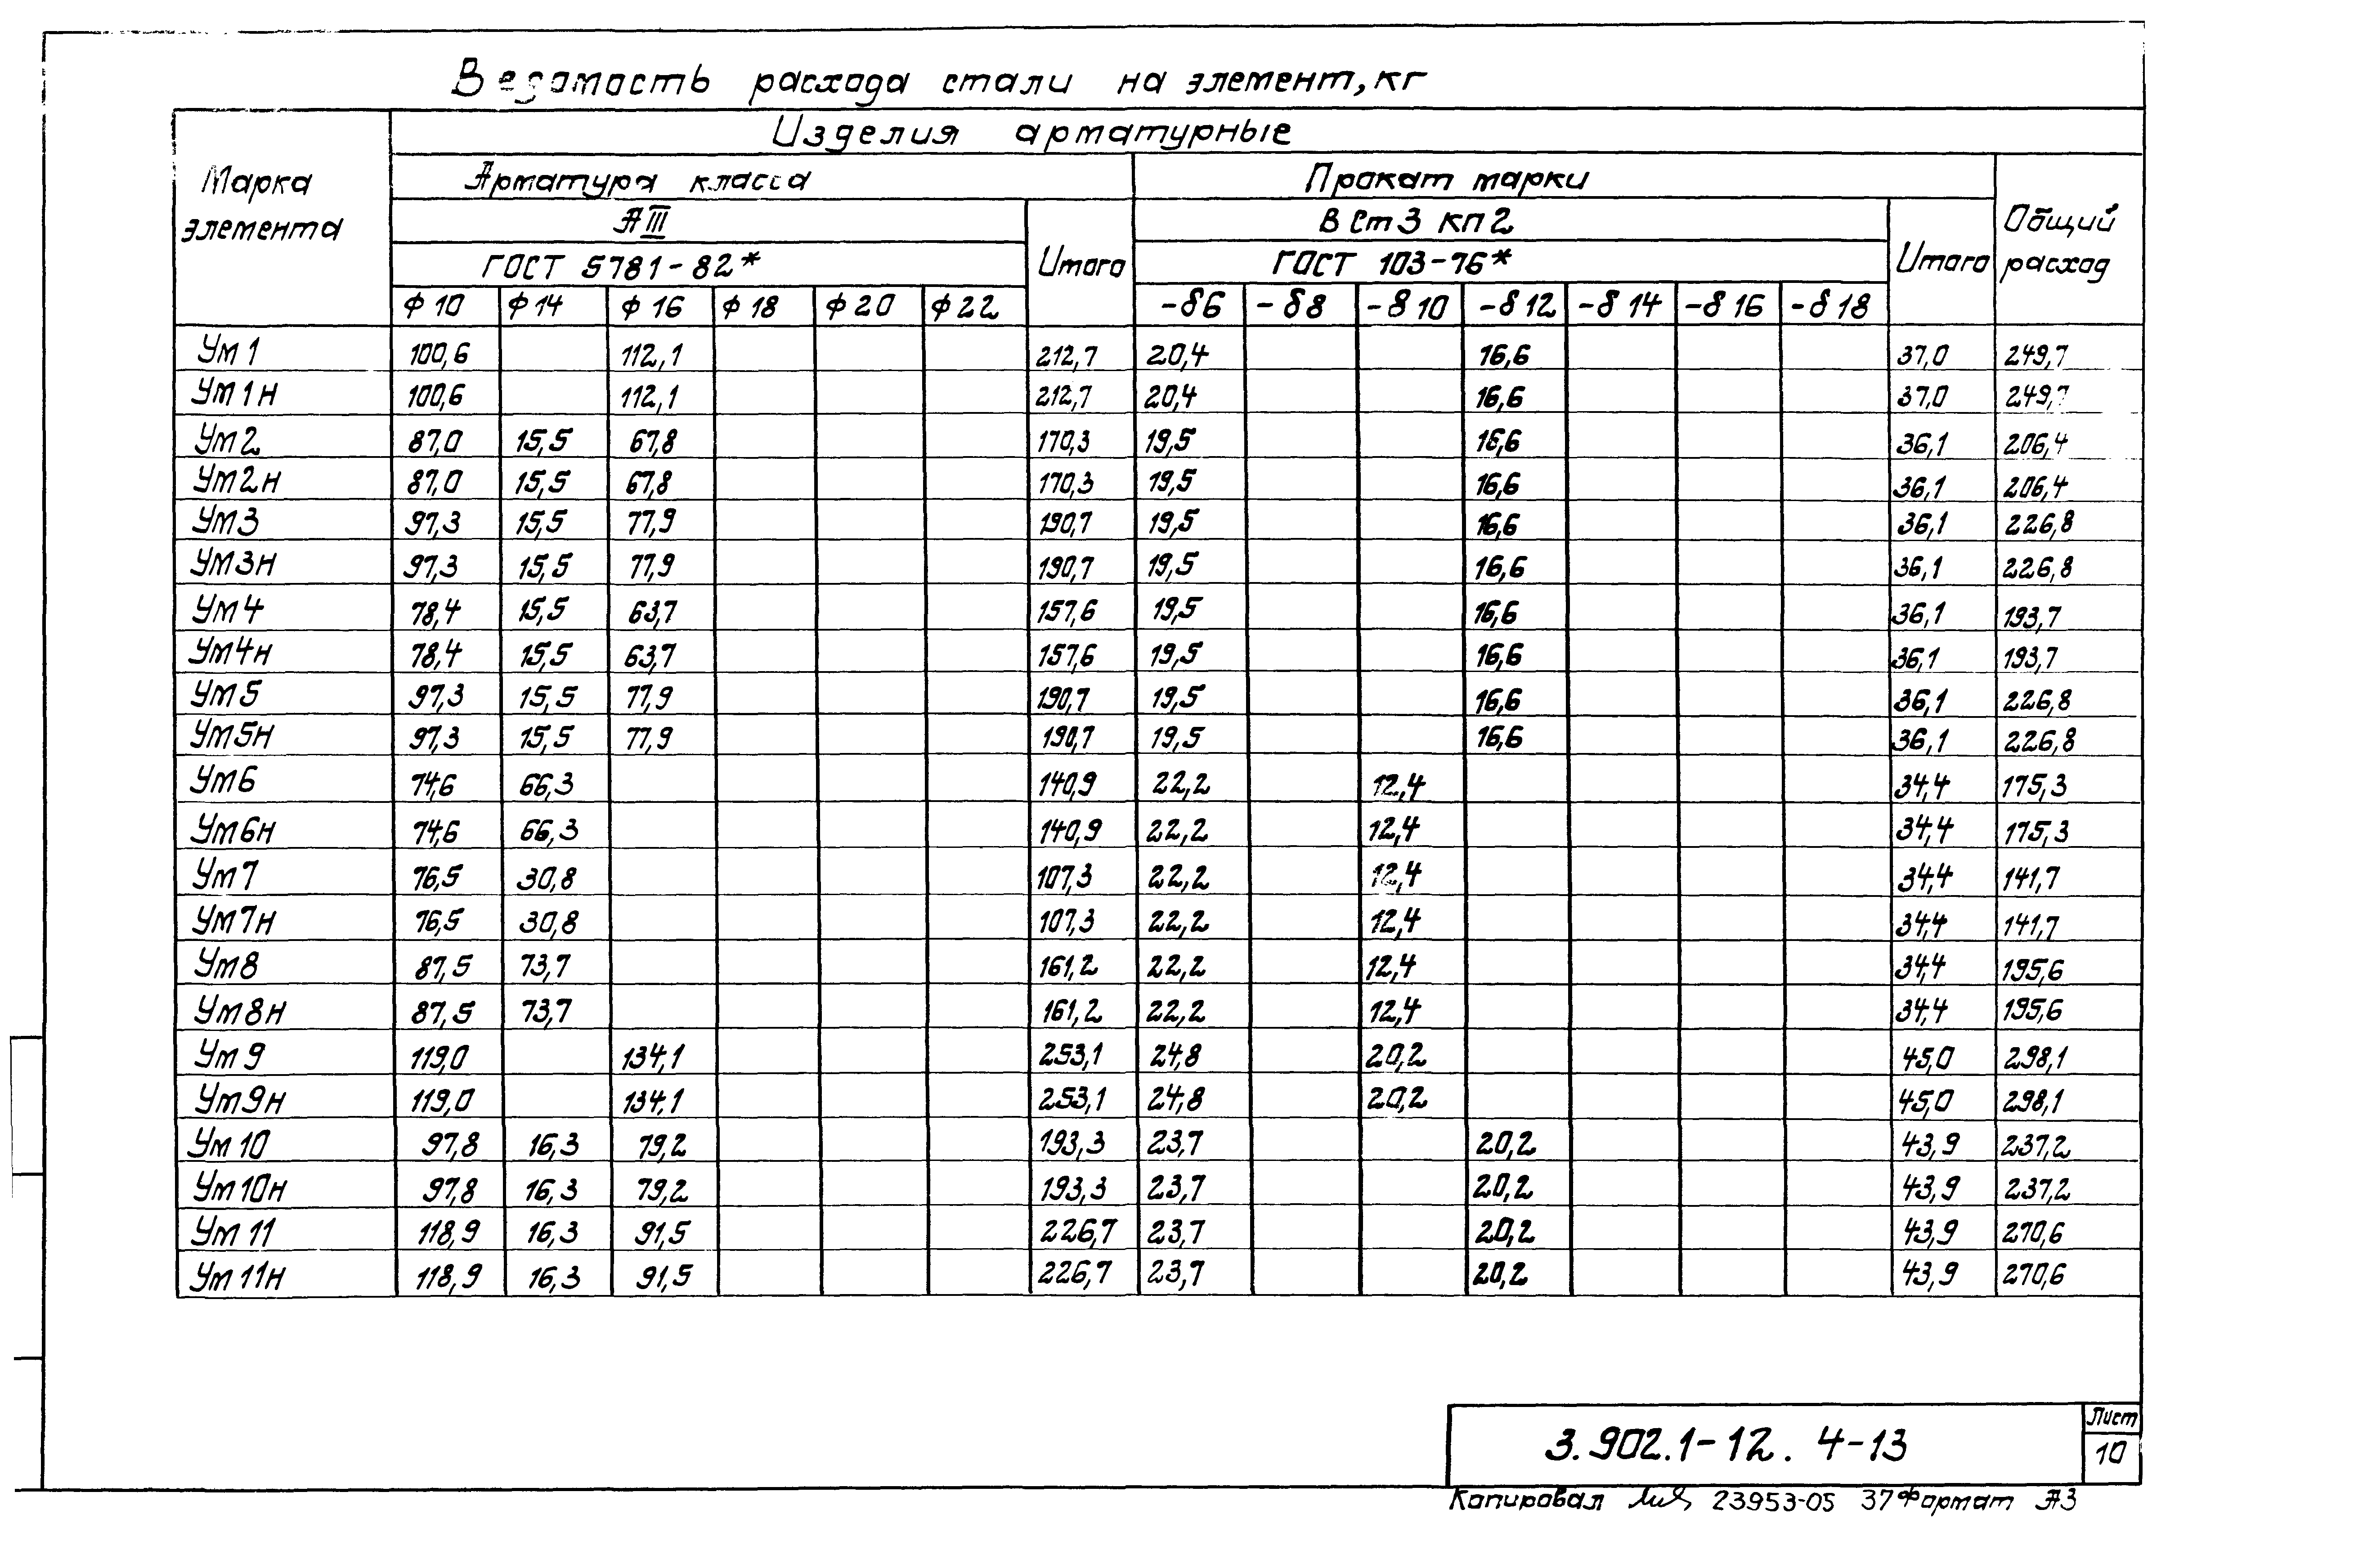 Ведомость расхода стали на элемент, кг
Изделия арматурные
Марка элемента
Арматура класса
Прокат марки
Общий расход
АIII
Итого
ВСт3 кп2
Итого
ГОСТ 5781-82*
ГОСТ 103-76*
Ф10 Ф14 Ф16 Ф18 Ф20 Ф22 -δ6 -δ8 -δ10 -δ12 -δ14 -δ16 -δ18
Ум1 100,6 112,1 212,7 20,4 16,6 37,0 249,7
Ум1н 100,6 112,1 212,7 20,4 16,6 37,0 249,7
Ум2 87,0 15,5 67,8 170,3 19,5 16,6 36,1 206,4
Ум2н 87,0 15,5 67,8 170,3 19,5 16,6 36,1 206,4
Ум3 97,3 15,5 77,9 190,7 19,5 16,6 36,1 226,8
Ум3н 97,3 15,5 77,9 190,7 19,5 16,6 36,1 226,8
Ум4 78,4 15,5 63,7 157,6 19,5 16,6 36,1 193,7
Ум4н 78,4 15,5 63,7 157,6 19,5 16,6 36,1 193,7
Ум5 97,3 15,5 77,9 190,7 19,5 16,6 36,1 226,8
Ум5н 97,3 15,5 77,9 190,7 19,5 16,6 36,1 226,8
Ум6 74,6 66,3 140,9 22,2 12,4 34,4 175,3
Ум6н 74,6 66,3 140,9 22,2 12,4 34,4 175,3
Ум7 76,5 30,8 107,3 22,2 12,4 34,4 141,7
Ум7н 76,5 30,8 107,3 22,2 12,4 34,4 141,7
Ум8 87,5 73,7 161,2 22,2 12,4 34,4 195,6
Ум8н 87,5 73,7 161,2 22,2 12,4 34,4 195,6
Ум9 119,0 134,1 253,1 24,8 20,2 45,0 298,1
Ум9н 119,0 134,1 253,1 24,8 20,2 45,0 298,1
Ум10 97,8 16,3 79,2 193,3 23,7 20,2 43,9 237,2
Ум10н 97,8 16,3 79,2 193,3 23,7 20,2 43,9 237,2
Ум11 118,9 16,3 91,5 226,7 23,7 20,2 43,9 270,6
Ум11н 118,9 16,3 91,5 226,7 23,7 20,2 43,9 270,6
3.902.1-12. 4-13
Лист
10
Копировал 23953-05 37 Формат А3